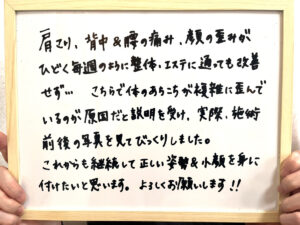 肩こり、背中&腰の痛み、顔の歪みが
ひどく毎週のように整体・エステに通っても改善
せず… こちらで体のあちこちが複雑に歪んで
いるのが原因だと説明を受け、実際、施術
前後の写真を見てびっくりしました。
これからも継続して正しい姿勢&小顔を身に
付けたいと思います。よろしくお願いします!!